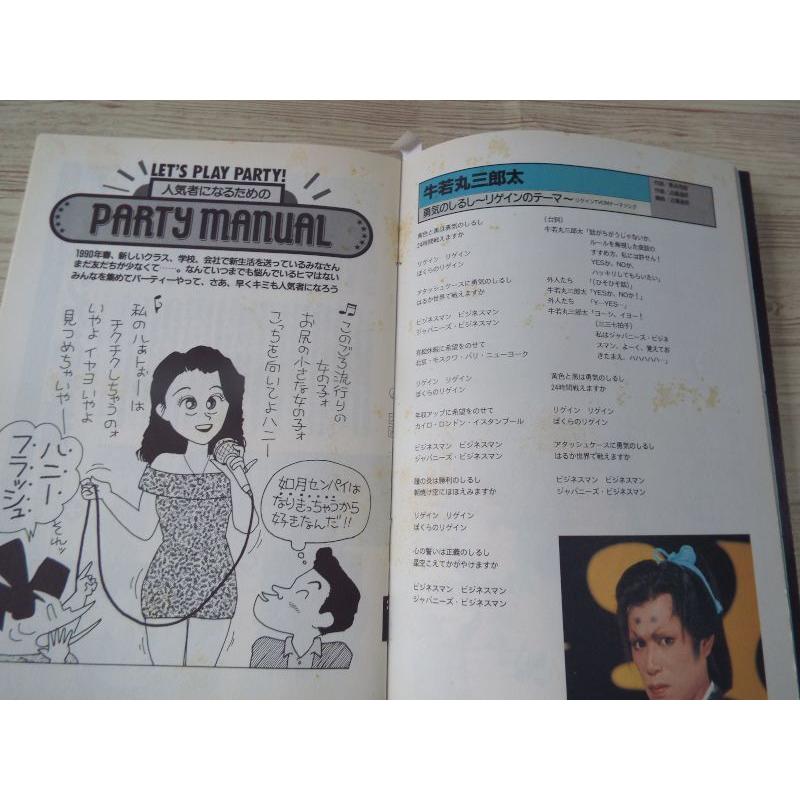 LET'S PLAY PARTY!
人気者になるための
PARTY MANUAL
1990年春、新しいクラス、学校、会社で新生活を送っているみなさん
まだ友だちが少なくて……。なんていつまでも悩んでいるヒマはない
みんなを集めてパーティーやって、さあ、早くキミも人気者になろう
♪このごろ流行りの
女の子ォ
お尻の小さな女の子ォ
こっちを向いてよハニー
私のハぁトぉーは
チクチクしちゃうのォ
いやよイヤヨいやよ
見つめちゃいやー
ハニー
フラッシュ
それッ
如月センパイは
なりきっちゃうから
好きなんだ!!
牛若丸三郎太
勇気のしるし〜リゲインのテーマ〜 リゲインTVCMテーマソング
黄色と黒は勇気のしるし
24時間戦えますか
リゲイン リゲイン
ぼくらのリゲイン
アタッシュケースに勇気のしるし
はるか世界で戦えますか
ビジネスマン ビジネスマン
ジャパニーズ・ビジネスマン
有給休暇に希望をのせて
北京・モスクワ・パリ・ニューヨーク
リゲイン リゲイン
ぼくらのリゲイン
年収アップに希望をのせて
カイロ・ロンドン・イスタンブール
ビジネスマン ビジネスマン
ジャパニーズ・ビジネスマン
瞳の炎は勝利のしるし
朝焼け空にほほえみますか
リゲイン リゲイン
ぼくらのリゲイン
心の誓いは正義のしるし
星空こえてかがやけますか
ビジネスマン ビジネスマン
ジャパニーズ・ビジネスマン
(台詞)
牛若丸三郎太「話がちがうじゃないか、
ルールを無視した商談の
すすめ方、私には許せん!
YESか、NOか、
ハッキリしてもらいたい」
外人たち 「(ひそひそ話)」
牛若丸三郎太「YESか、NOか!」
外人たち 「Y…YES…」
牛若丸三郎太「ヨーシ、イヨー!
(三三七拍子)
私はジャパニーズ・ビジネ
スマン、よーく、覚えてお
きたまえ、ハハハハハ…」
黄色と黒は勇気のしるし
24時間戦えますか
リゲイン リゲイン
ぼくらのリゲイン
アタッシュケースに勇気のしるし
はるか世界で戦えますか
ビジネスマン ビジネスマン
ジャパニーズ・ビジネスマン